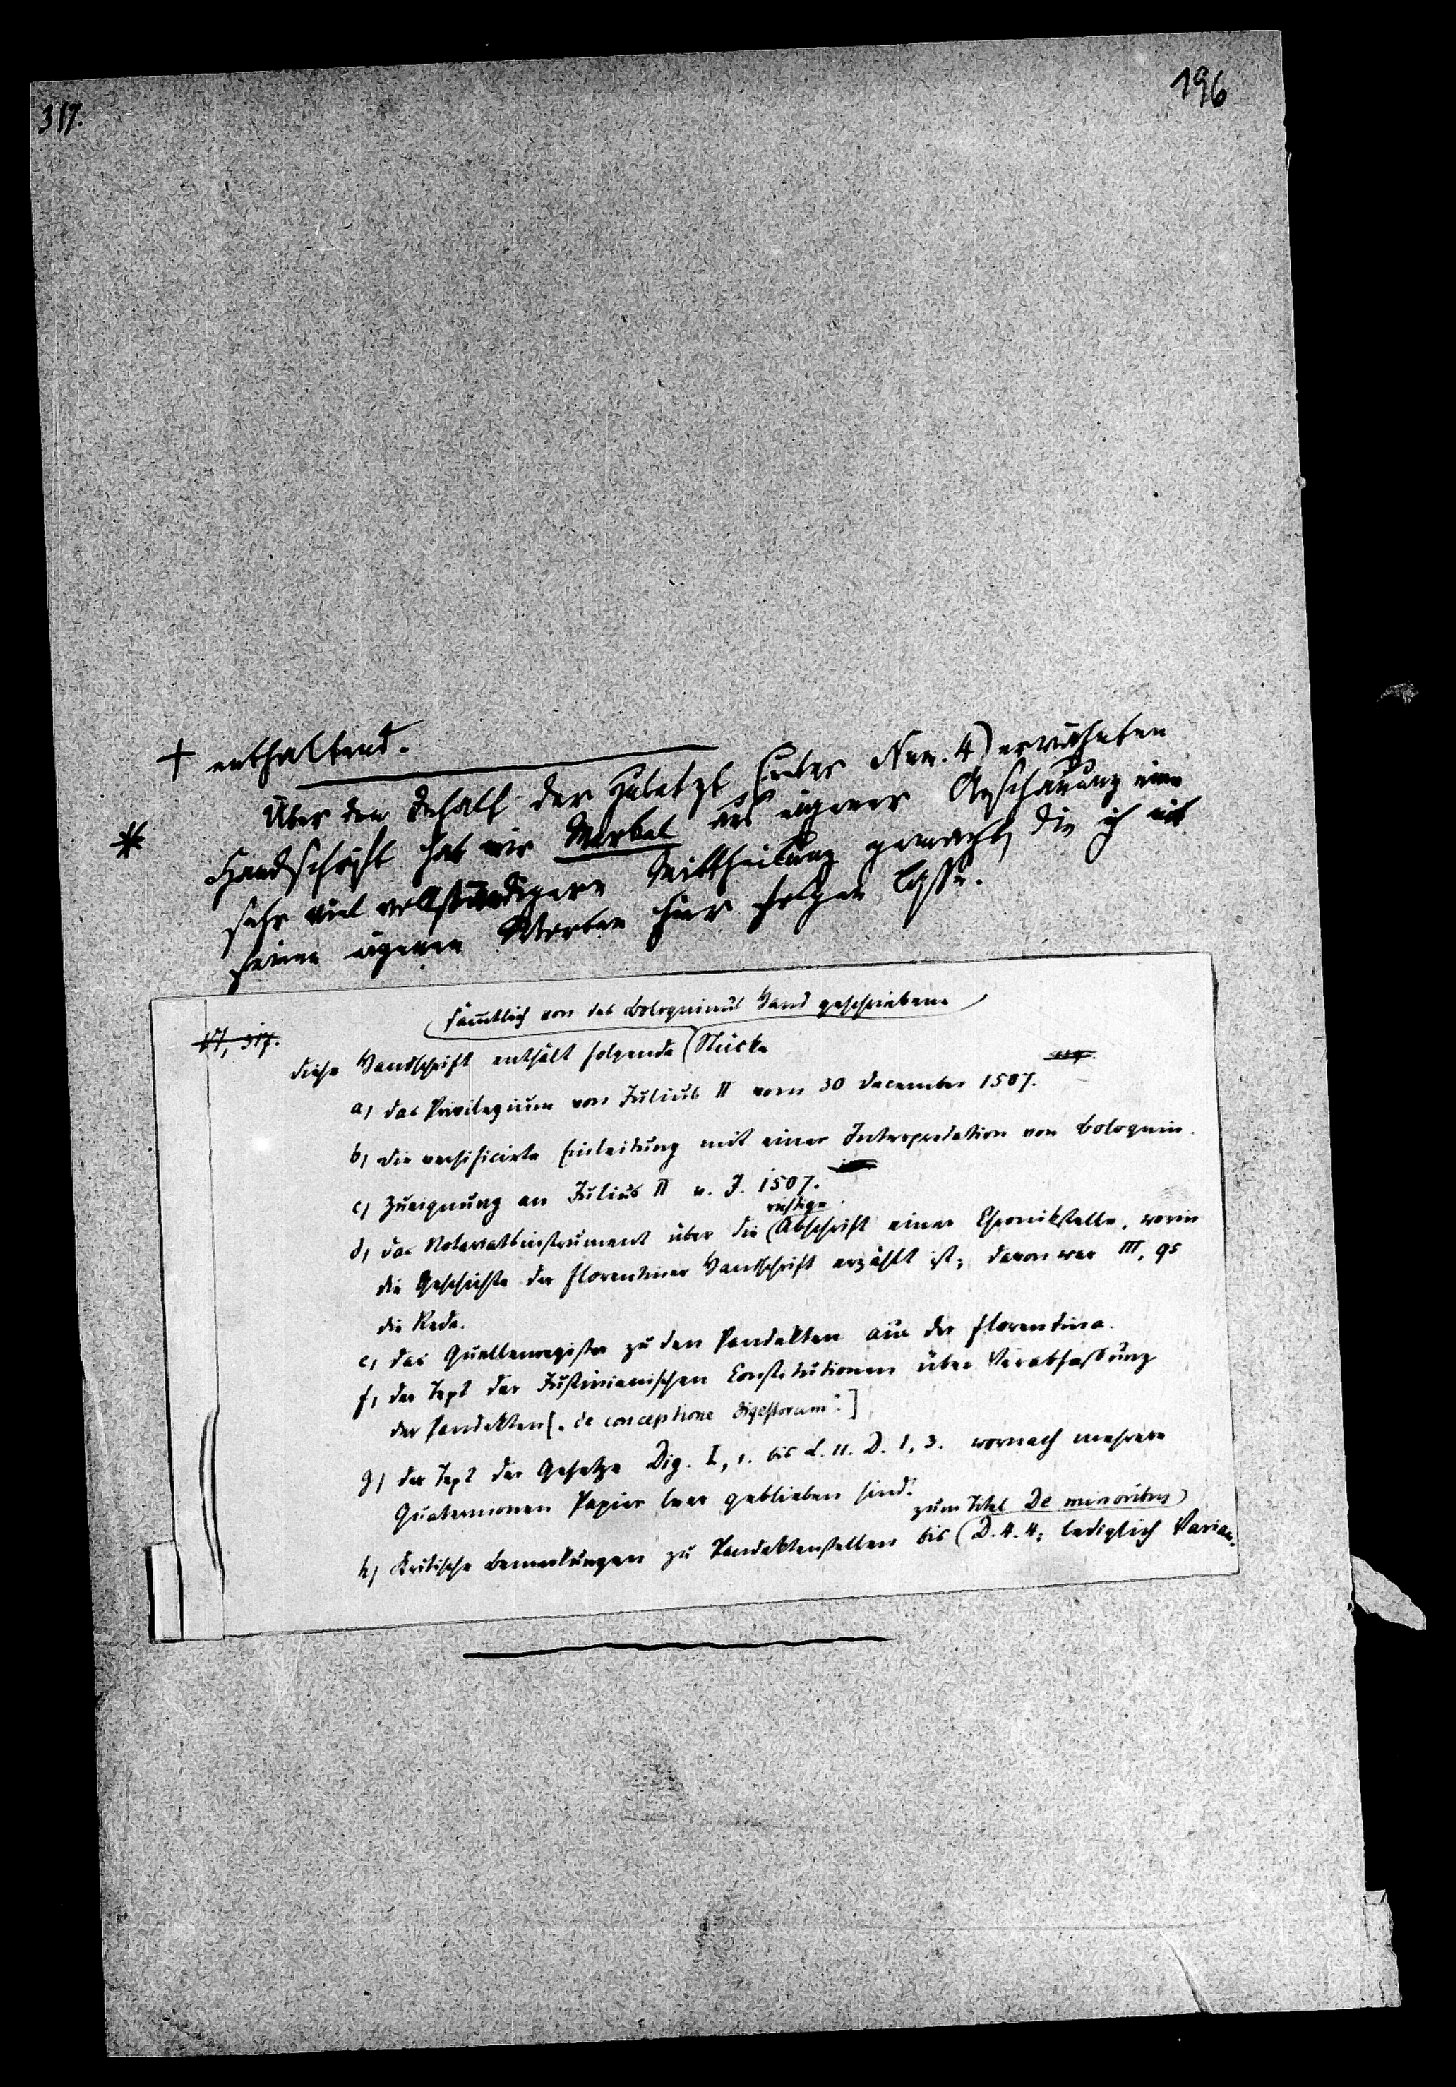 317.
196
+ enthaltend.
* Über den Inhalt der zuletzt (unter Num. 4) erwähnten
Handschrift hat mir Merkel aus eigener Anschauung eine
sehr viel vollständigere Mittheilung gemacht, die ich mit
seinen eigenen Worten hier folgen lasse.
317.
sämtlich von des Bologninus Hand geschriebene
diese Handschrift enthält folgende Stücke
a) das Privilegium von Julius II vom 30 December 1507.
b) die versificirte Einleitung mit einer Interpretation von Bolognin.
c) Zueignung an Julius II v. J. 1507.
richtige
d) das Notariatsinstrument über die Abschrift einer Chronikstelle, worin
die Geschichte der florentiner Handschrift erzählt ist; davon war III, 95
die Rede.
e) das Quellenregister zu den Pandekten aus der florentina.
f) der Text der Justinianischen Constitutionen über Verabfassung
der Pandekten [„de conceptione digestorum“]
g) der Text der Gesetze Dig. I, 1. bis L. 11. D. 1, 3. wornach mehrere
Quaternionen Papier leer geblieben sind.
zum Titel De minoribus
h) Kritische Bemerkungen zu Pandektenstellen bis D. 4. 4; lediglich Varian.